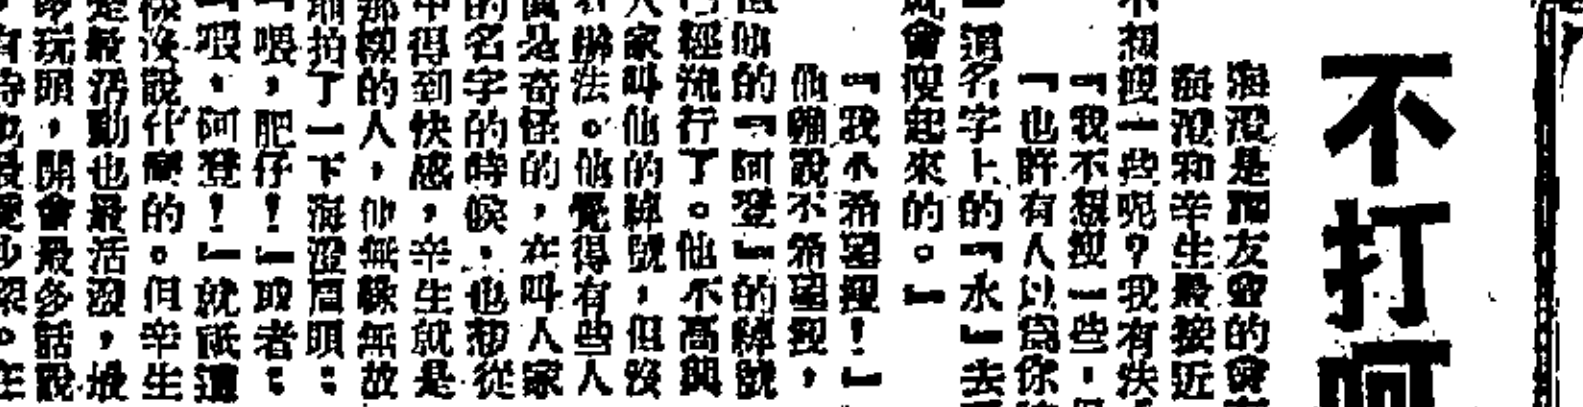 不打呵
海澄是團友會的會
海澄和辛生最接近
不想瘦一些呢？我有決
『我不想瘦一些，
『也許有人以爲你
名字上的『水』去
就會瘦起來的。』
『我不希望裡！』
他雖說不希望裡，
他的『阿登』的綽號
已經流行了。他不高興
人家叫他的綽號，但沒
有辦法。他覺得有些人
眞是奇怪的，在叫人家
的名字的時候，也想從
中得到快感，辛生就是
那樣的人，他無緣無故
拍了一下海澄肩頭：
『喂，肥仔！』或者：
『喂，阿登！』就祇這
沒說什麼的。但辛生
是最活動也最活潑，最
玩頭，開會最多話說